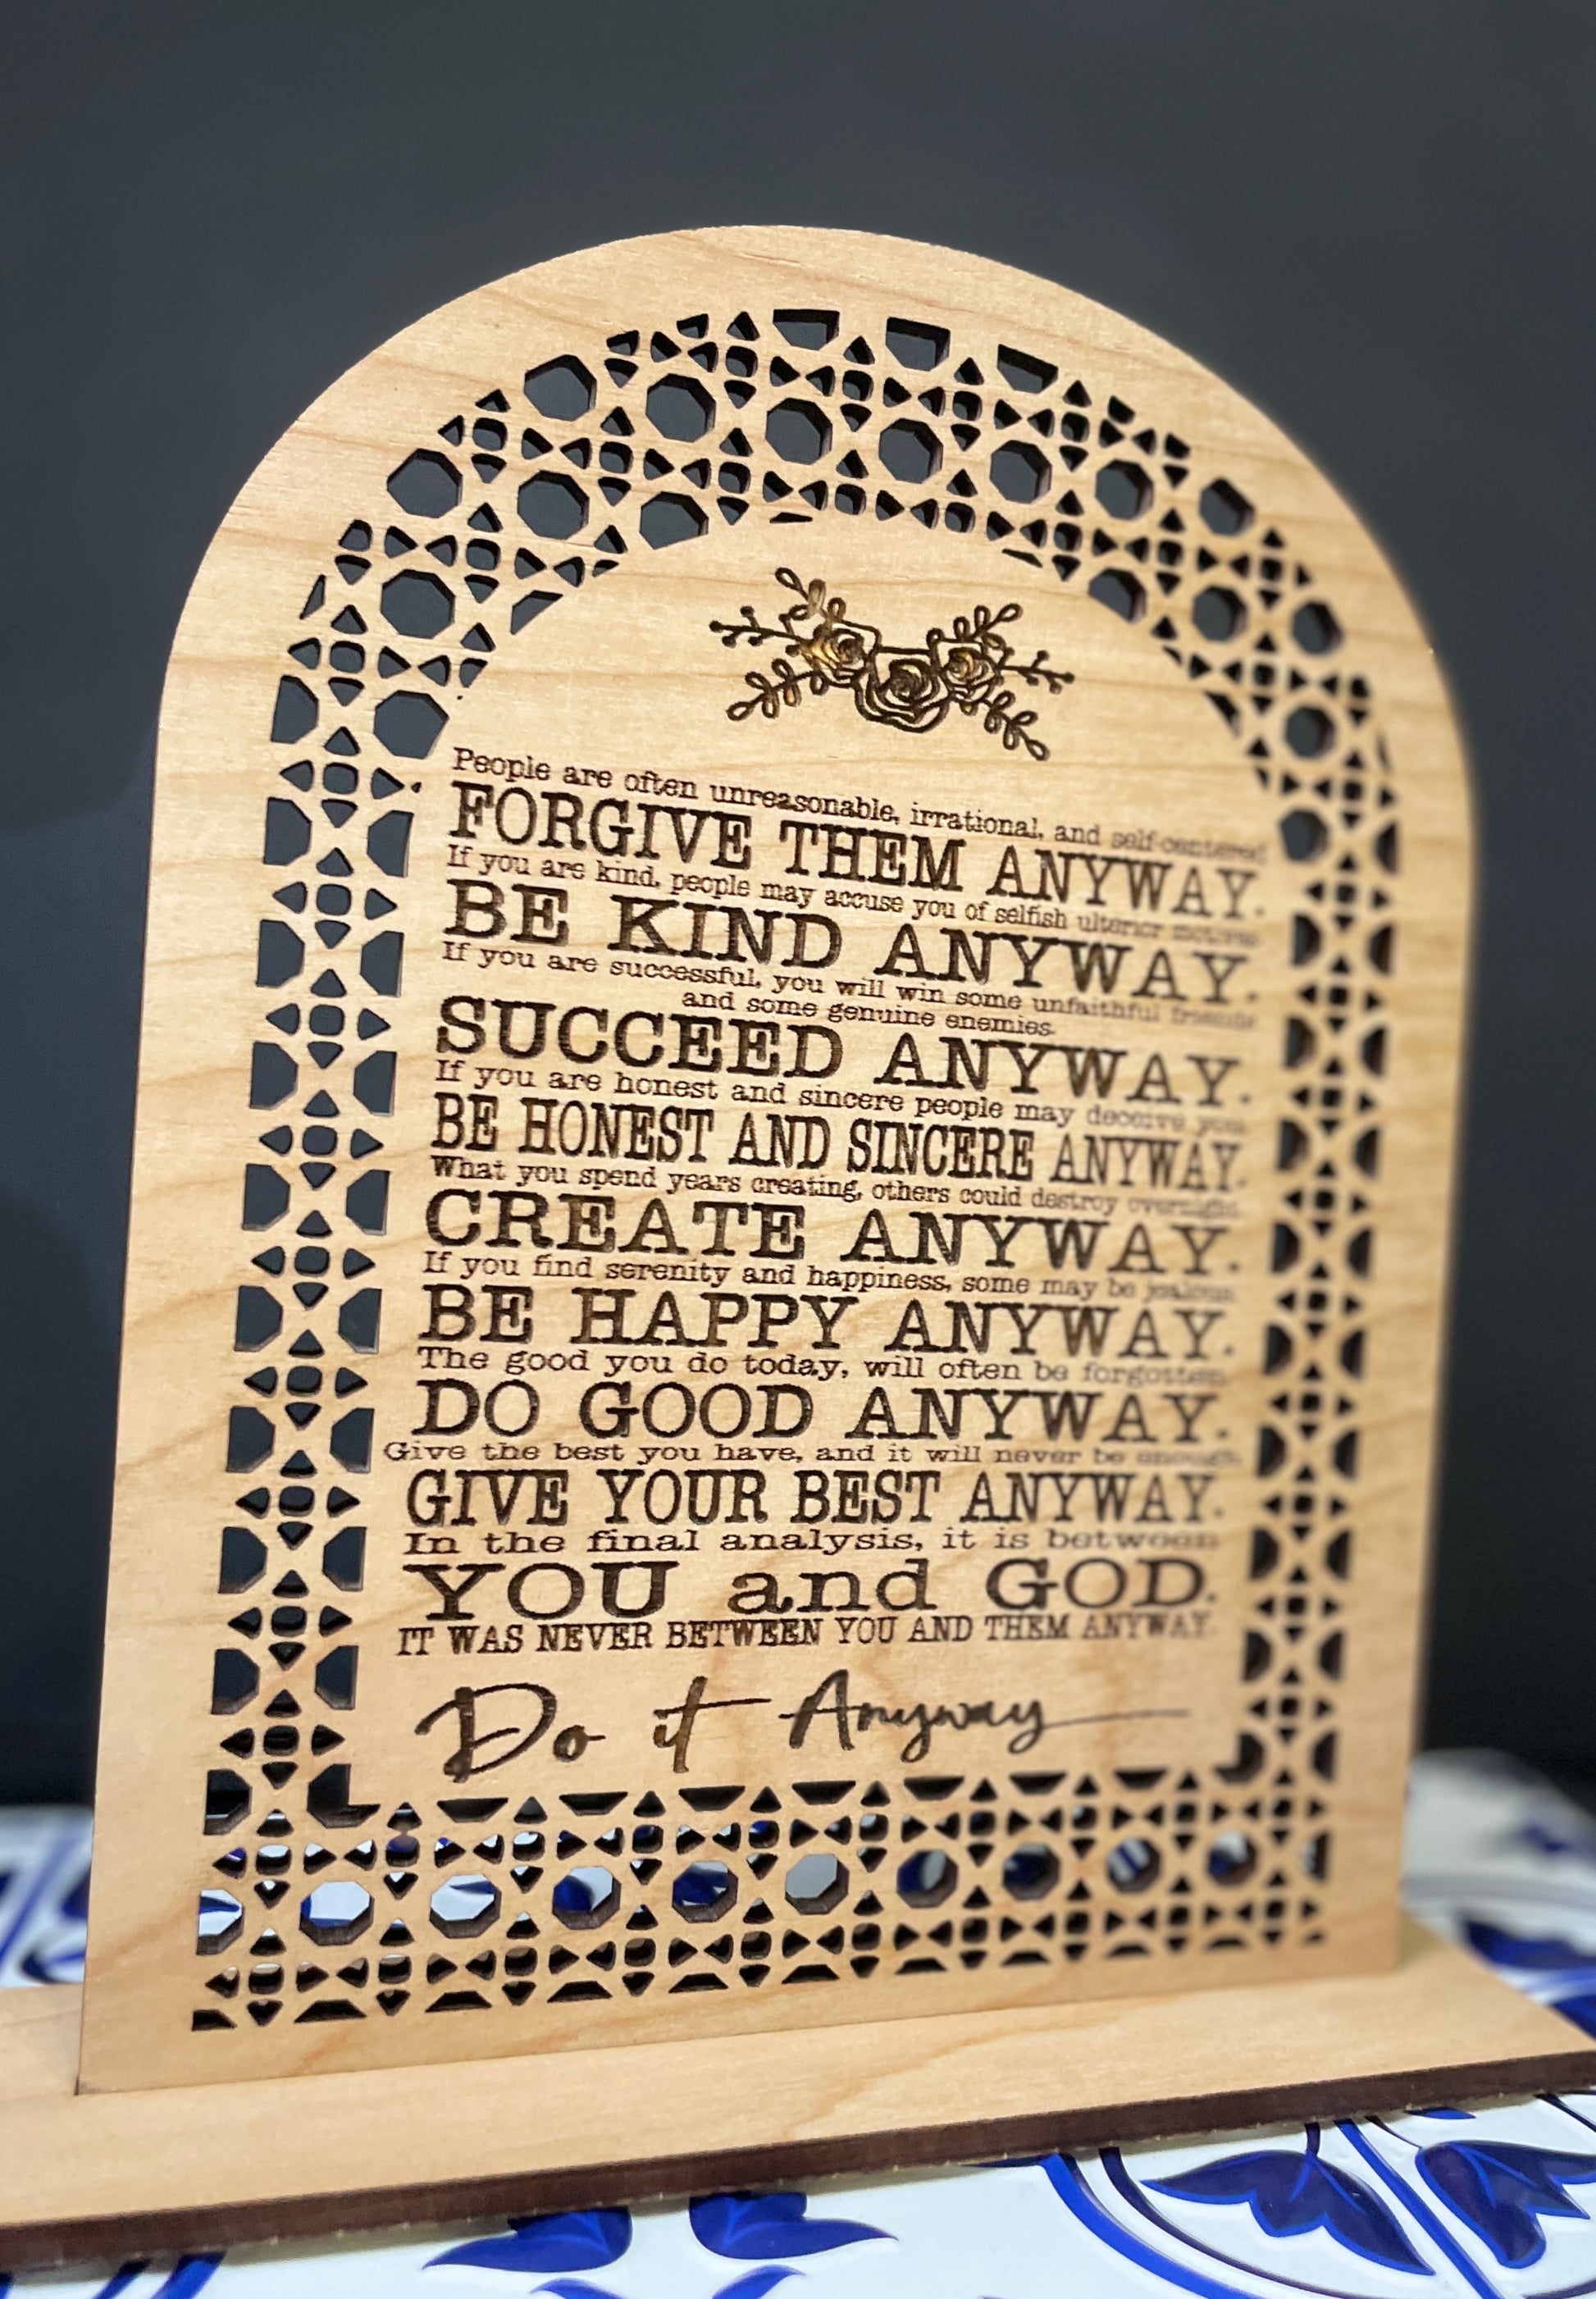 People are often unreasonable, irrational, and self-centered
FORGIVE THEM ANYWAY.
If you are kind, people may accuse you of selfish ulterior motives
BE KIND ANYWAY.
If you are successful, you will win some unfaithful friends
and some genuine enemies.
SUCCEED ANYWAY.
If you are honest and sincere people may deceive you.
BE HONEST AND SINCERE ANYWAY.
What you spend years creating, others could destroy overnight.
CREATE ANYWAY.
If you find serenity and happiness, some may be jealous.
BE HAPPY ANYWAY.
The good you do today, will often be forgotten.
DO GOOD ANYWAY.
Give the best you have, and it will never be enough.
GIVE YOUR BEST ANYWAY.
In the final analysis, it is between
YOU and GOD.
IT WAS NEVER BETWEEN YOU AND THEM ANYWAY.
Do it Anyway